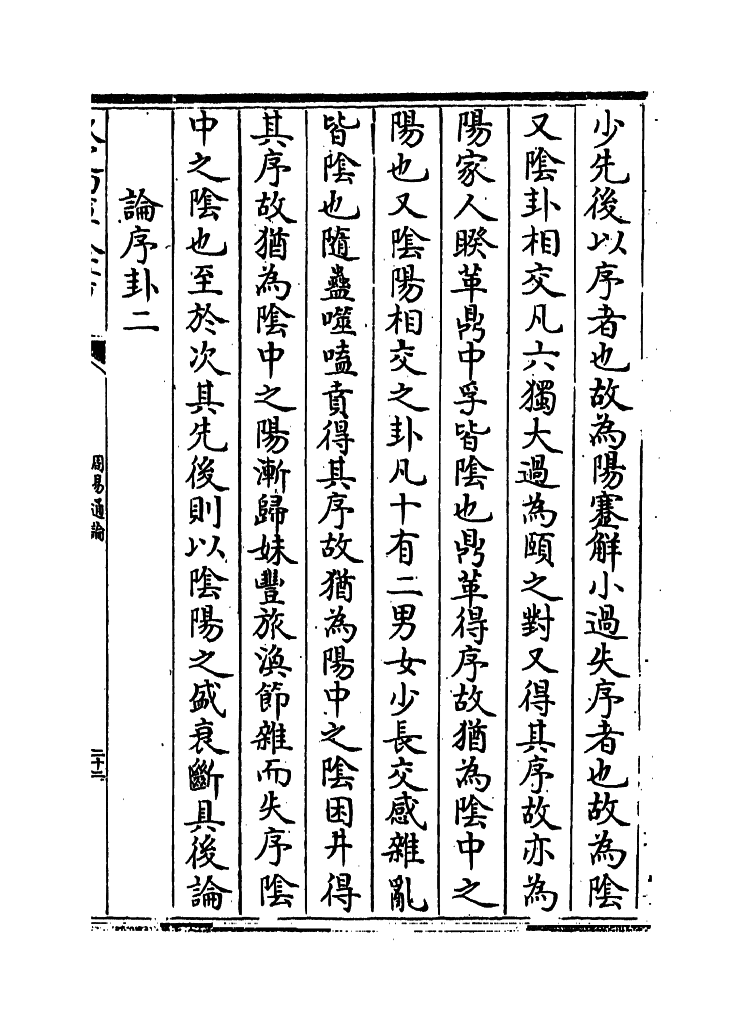 少先後以序者也故為陽蹇解小過失序者也故為陰
又陰卦相交凡六獨大過為頤之對又得其序故亦為
陽家人睽革鼎中孚皆陰也鼎革得序故猶為陰中之
陽也又陰陽相交之卦凡十有二男女少長交感雜亂
皆陰也隨蠱噬嗑賁得其序故猶為陽中之陰困井得
其序故猶為陰中之陽漸歸妹豐旅渙節雜而失序陰
中之陰也至於次其先後則以陰陽之盛衰斷具後論
論序卦二
周易通論
二十二